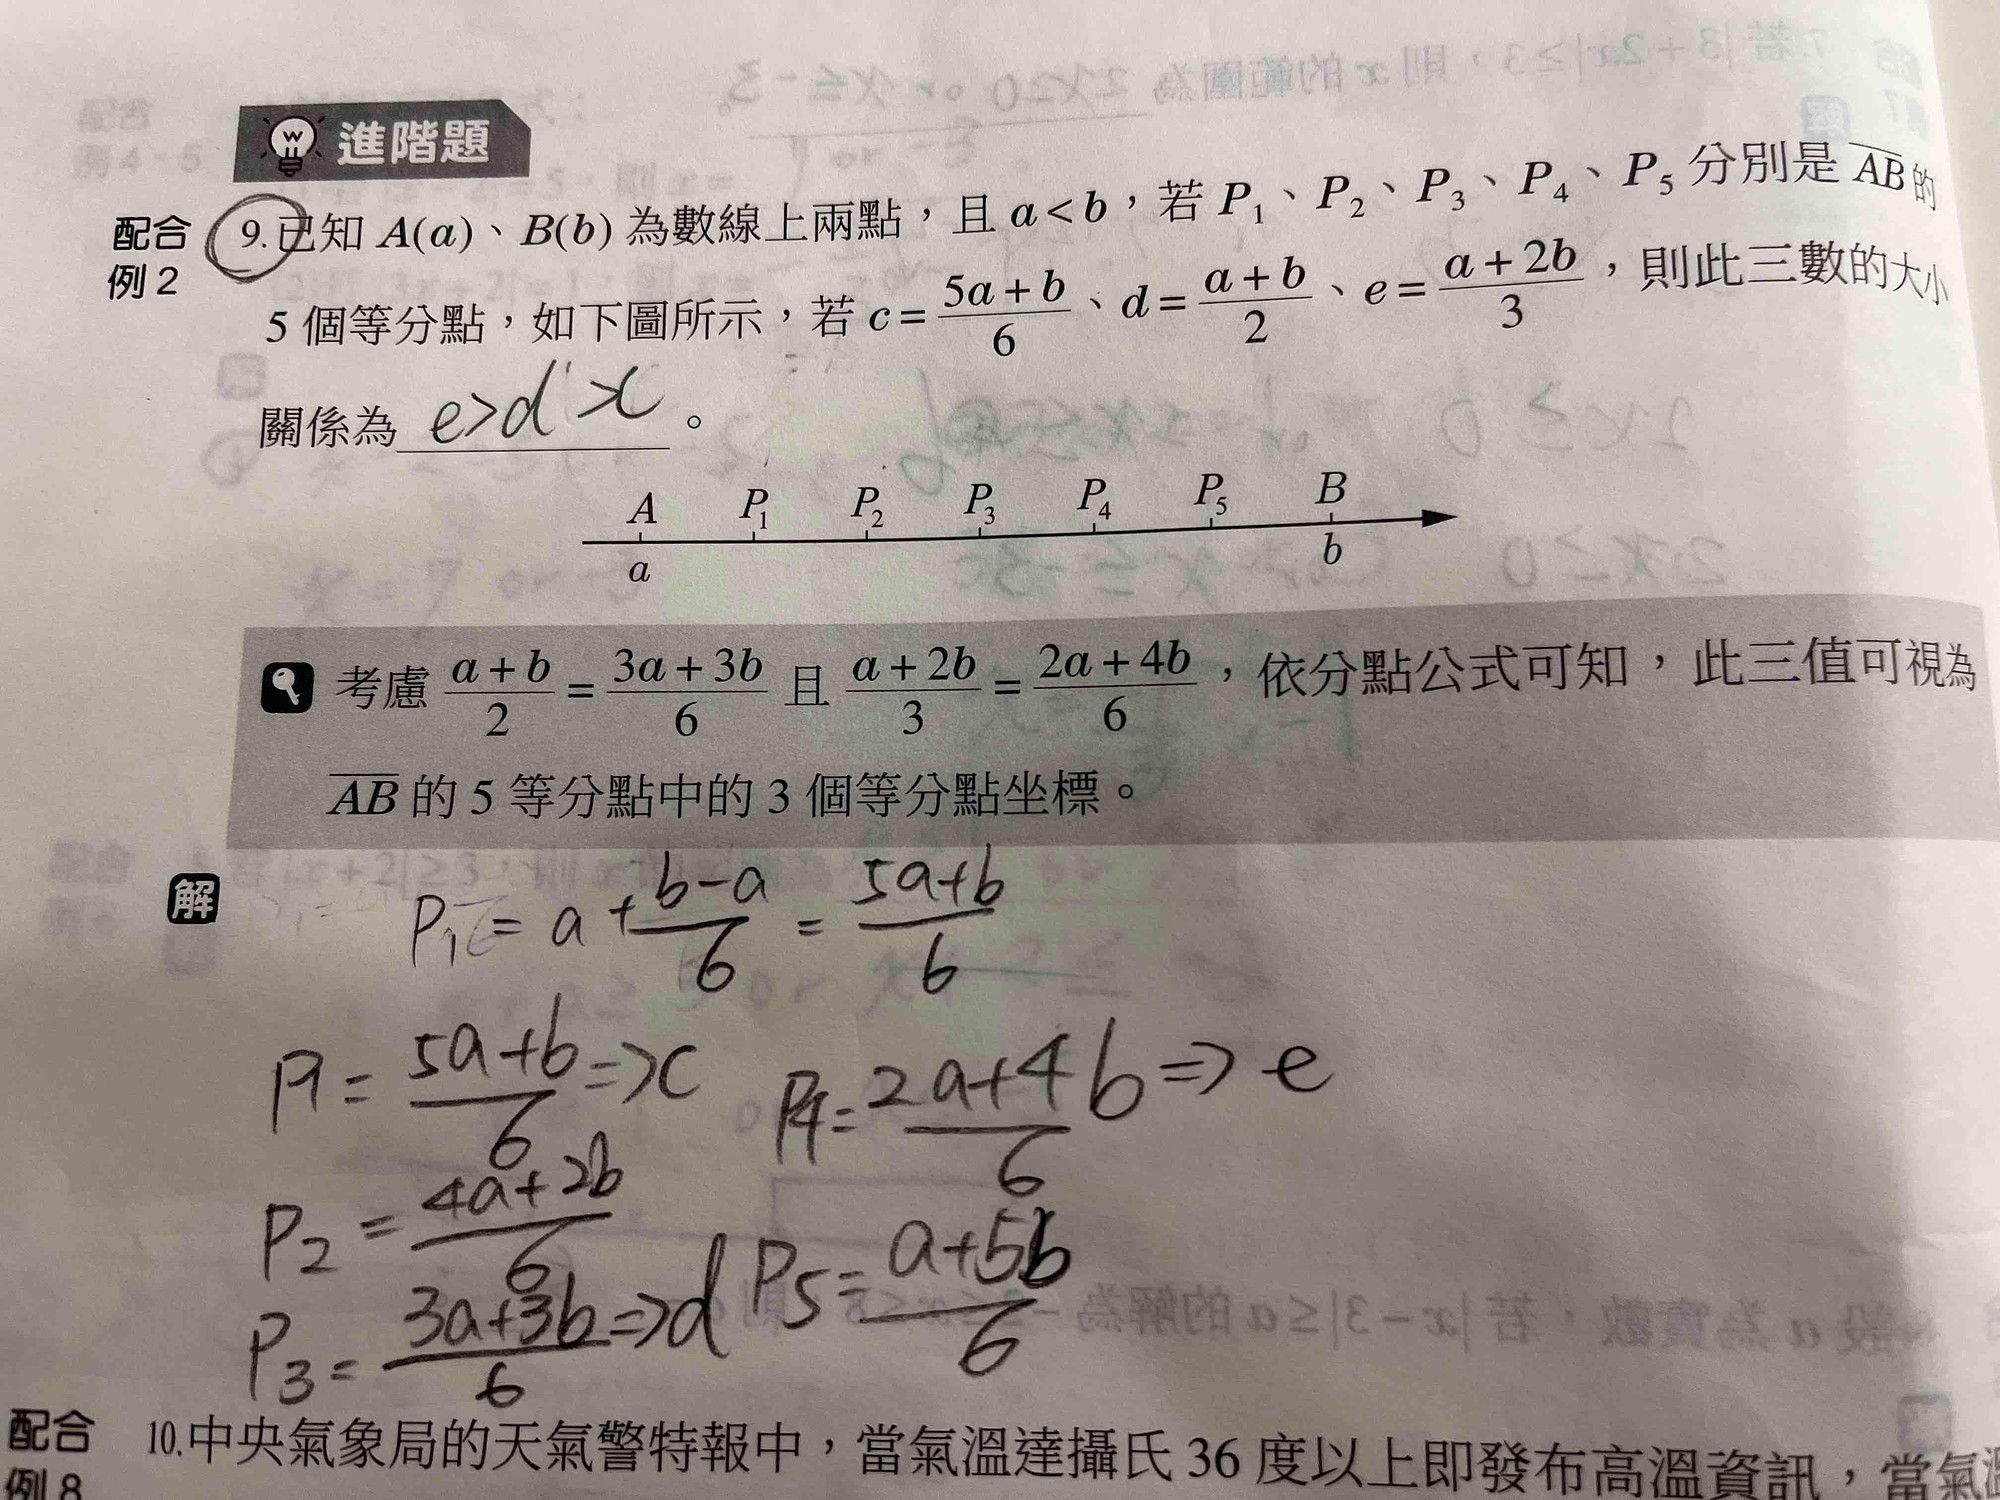 進階題
配合
例2
9.已知 A(a)、B(b) 為數線上兩點，且 a<b，若 P₁、P₂、P₃、P₄、P₅ 分別是 AB 的
5 個等分點，如下圖所示，若 c=(5a+b)/6、d=(a+b)/2、e=(a+2b)/3，則此三數的大小
關係為 e>d>c 。
A P₁ P₂ P₃ P₄ P₅ B
a b
考慮 (a+b)/2 = (3a+3b)/6 且 (a+2b)/3 = (2a+4b)/6，依分點公式可知，此三值可視為
AB 的 5 等分點中的 3 個等分點坐標。
解
P₁ = a + (b-a)/6 = (5a+b)/6
P1 = (5a+b)/6 => c
P4 = (2a+4b)/6 => e
P2 = (4a+2b)/6
P3 = (3a+3b)/6 => d
P5 = (a+5b)/6
配合
例8
10.中央氣象局的天氣警特報中，當氣溫達攝氏 36 度以上即發布高溫資訊，當氣溫